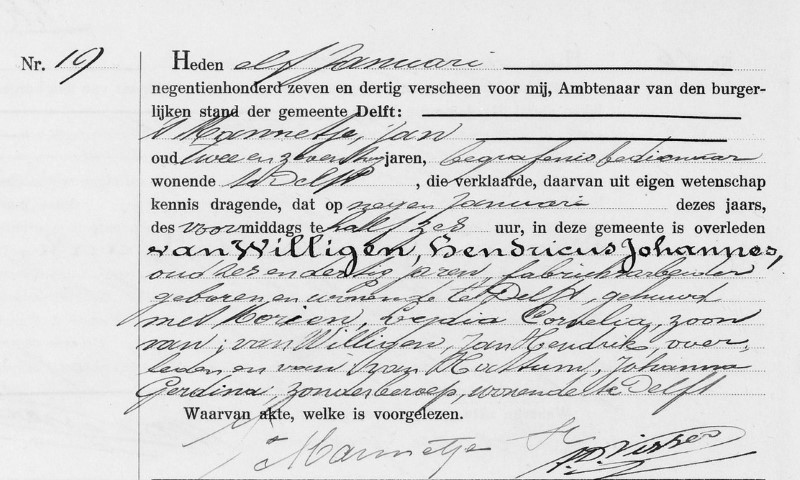 Nr. 19 Heden elf Januari
negentienhonderd zeven en dertig verscheen voor mij, Ambtenaar van den burger-
lijken stand der gemeente Delft:
't Mannetje, Jan
oud twee en zeventig jaren, begrafenisbedienaar
wonende te Delft, die verklaarde, daarvan uit eigen wetenschap
kennis dragende, dat op negen Januari dezes jaars,
des voormiddags te half zes uur, in deze gemeente is overleden
van Willigen, Hendricus Johannes,
oud zes en dertig jaren, fabrieksarbeider
geboren en wonende te Delft, gehuwd
met Korien, Lydia Cornelia, zoon
van: van Willigen, Jan Hendrik, over-
leden en van: van Hattum, Johanna
Gerdina, zonder beroep, wonende te Delft
Waarvan akte, welke is voorgelezen.
't Mannetje Visser